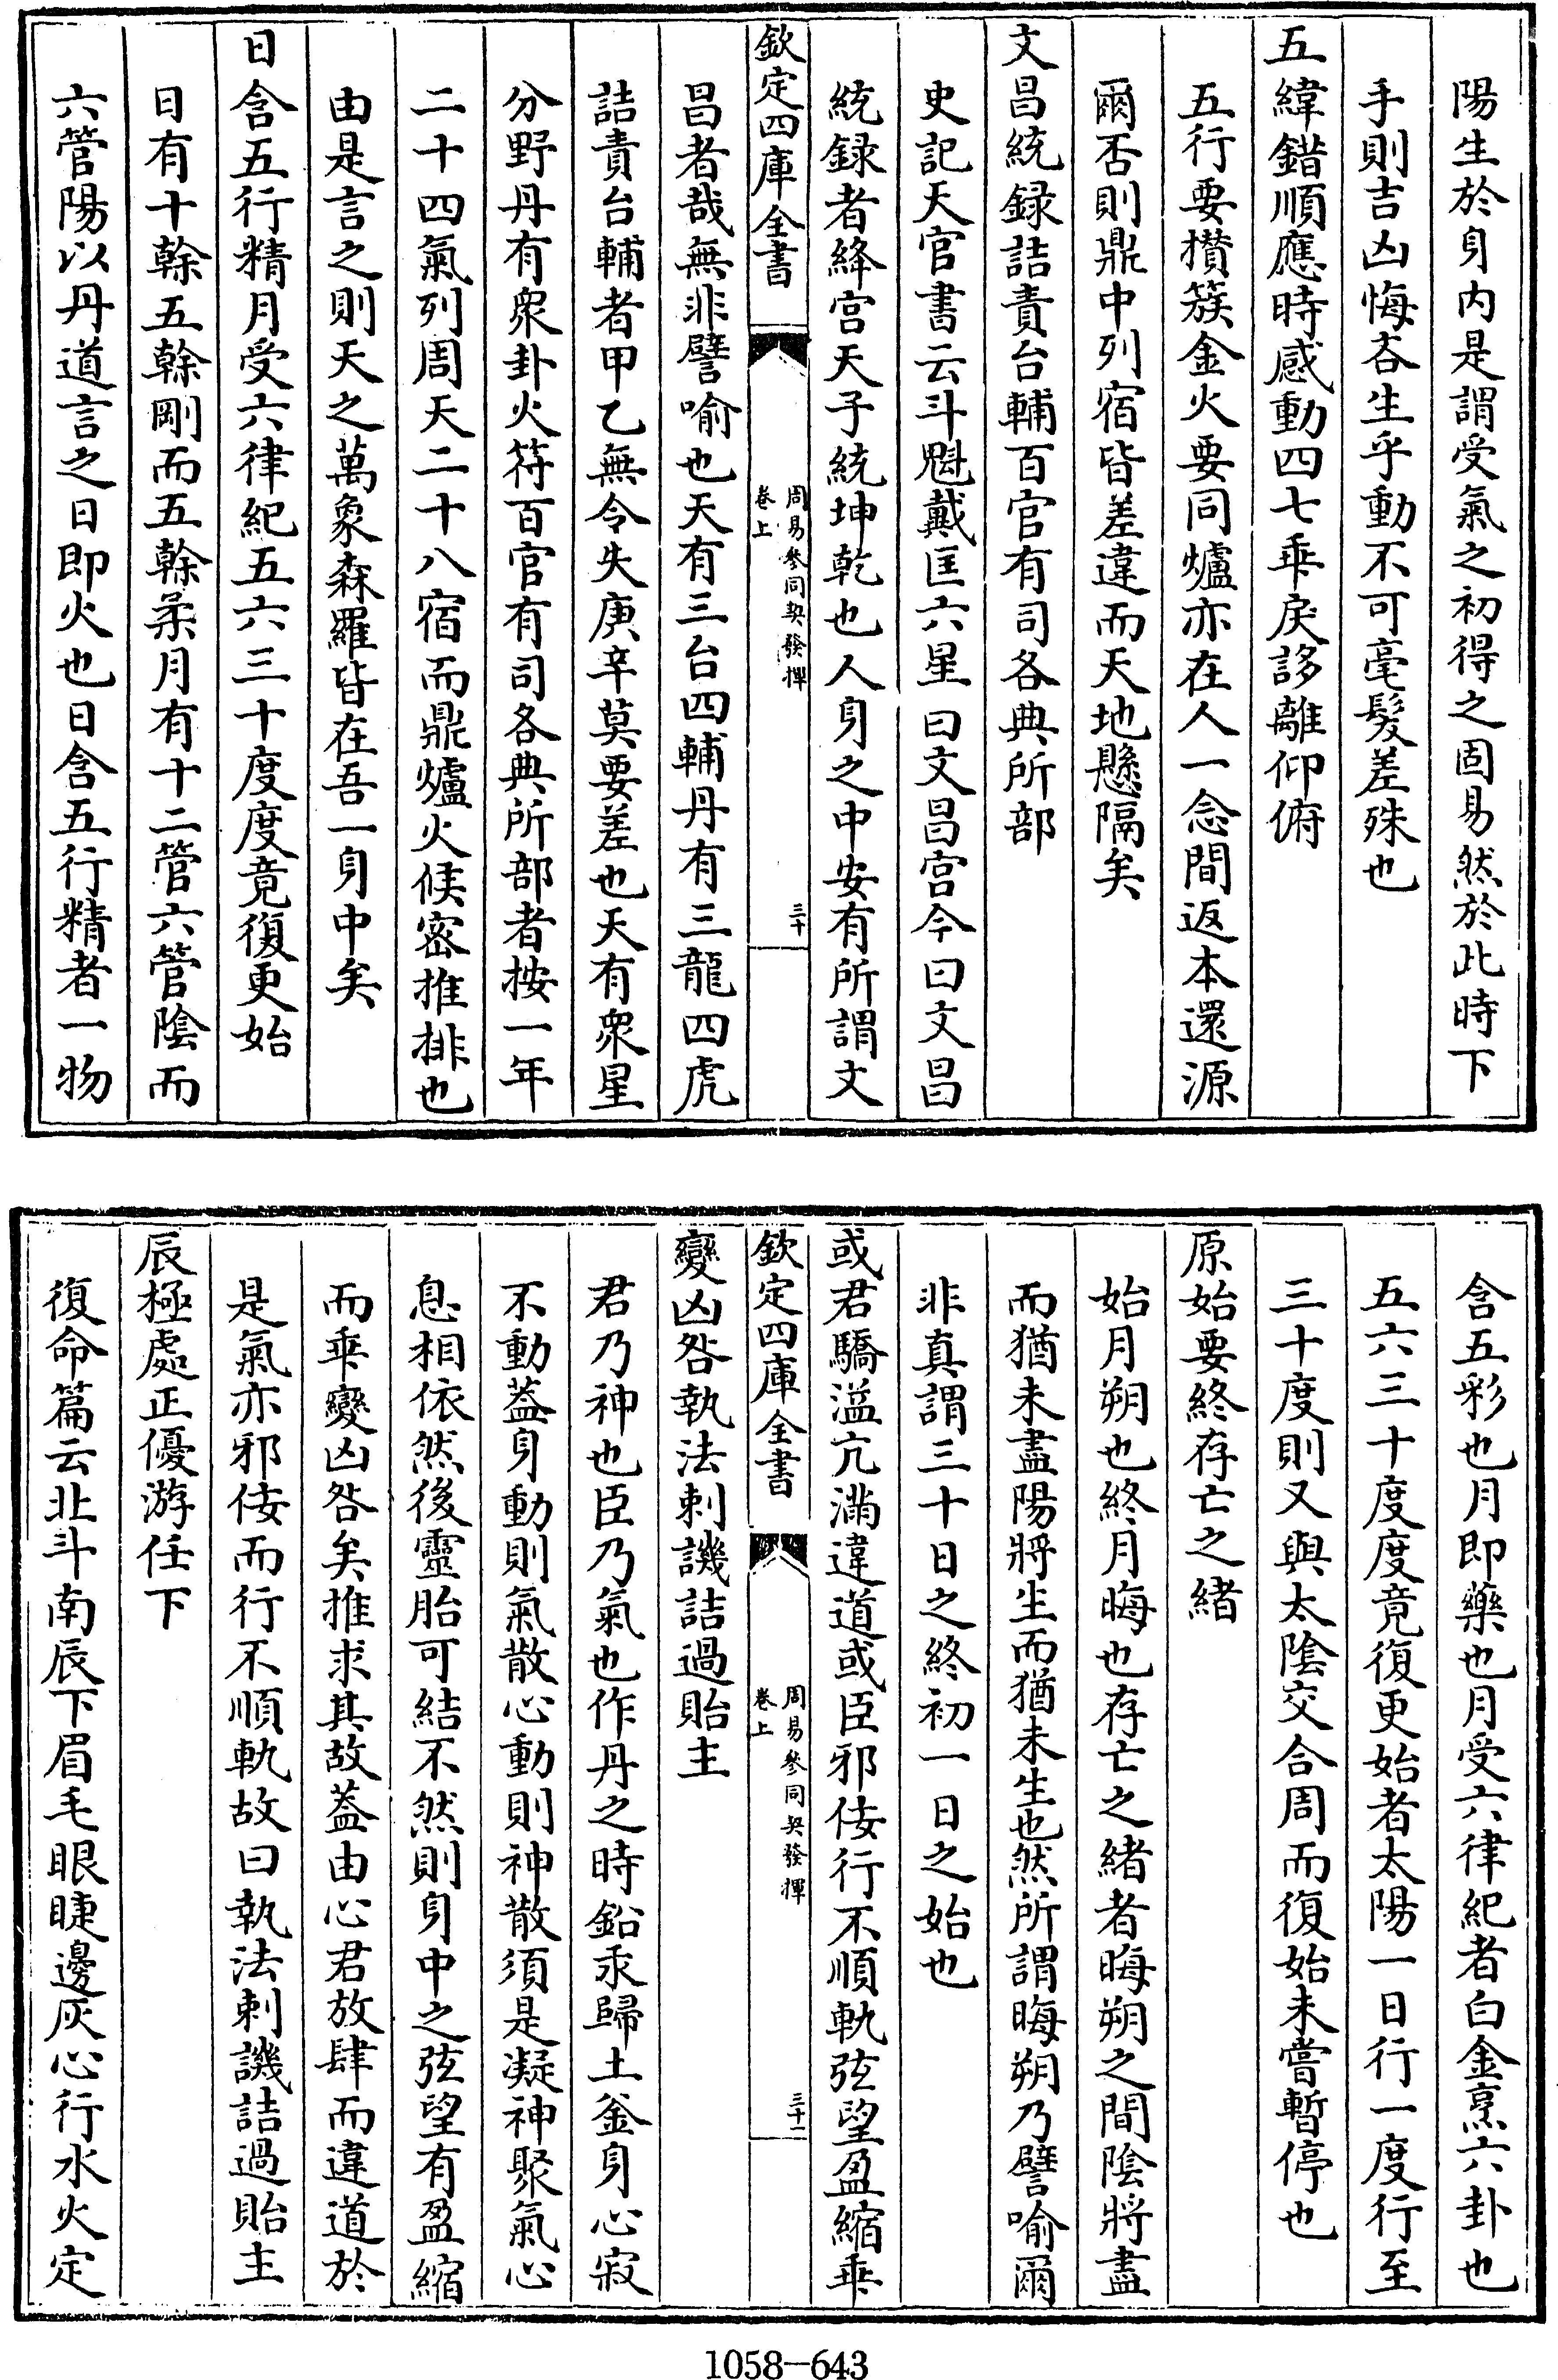 陽生於身内是謂受氣之初得之固易然於此時下
手則吉凶悔吝生乎動不可毫髮差殊也
五緯錯順應時感動四七乖戾誃離仰俯
五行要攅簇金火要同爐亦在人一念間返本還源
爾否則鼎中列宿皆差違而天地懸隔矣
文昌統録詰責台輔百官有司各典所部
史記天官書云斗魁戴匡六星曰文昌宫今曰文昌
統録者絳宫天子統坤乾也人身之中安有所謂文
欽定四庫全書
周易參同契發揮
卷上
三十
昌者哉無非譬喻也天有三台四輔丹有三龍四虎
詰責台輔者甲乙無令失庚辛莫要差也天有衆星
分野丹有衆卦火符百官有司各典所部者按一年
二十四氣列周天二十八宿而鼎爐火候密推排也
由是言之則天之萬象森羅皆在吾一身中矣
日含五行精月受六律紀五六三十度度竟復更始
日有十榦五榦剛而五榦柔月有十二管六管陰而
六管陽以丹道言之日即火也日含五行精者一物
含五彩也月即藥也月受六律紀者白金烹六卦也
五六三十度度竟復更始者太陽一日行一度行至
三十度則又與太陰交合周而復始未嘗暫停也
原始要終存亡之緒
始月朔也終月晦也存亡之緒者晦朔之間陰將盡
而猶未盡陽將生而猶未生也然所謂晦朔乃譬喻爾
非真謂三十日之終初一日之始也
或君驕溢亢滿違道或臣邪佞行不順軌弦望盈縮乖
欽定四庫全書
周易參同契發揮
卷上
三十一
變凶咎執法刺譏詰過貽主
君乃神也臣乃氣也作丹之時鉛汞歸土釜身心寂
不動葢身動則氣散心動則神散須是凝神聚氣心
息相依然後靈胎可結不然則身中之弦望有盈縮
而乖變凶咎矣推求其故葢由心君放肆而違道於
是氣亦邪佞而行不順軌故曰執法刺譏詰過貽主
辰極處正優游任下
復命篇云北斗南辰下眉毛眼睫邊灰心行水火定
1058-643